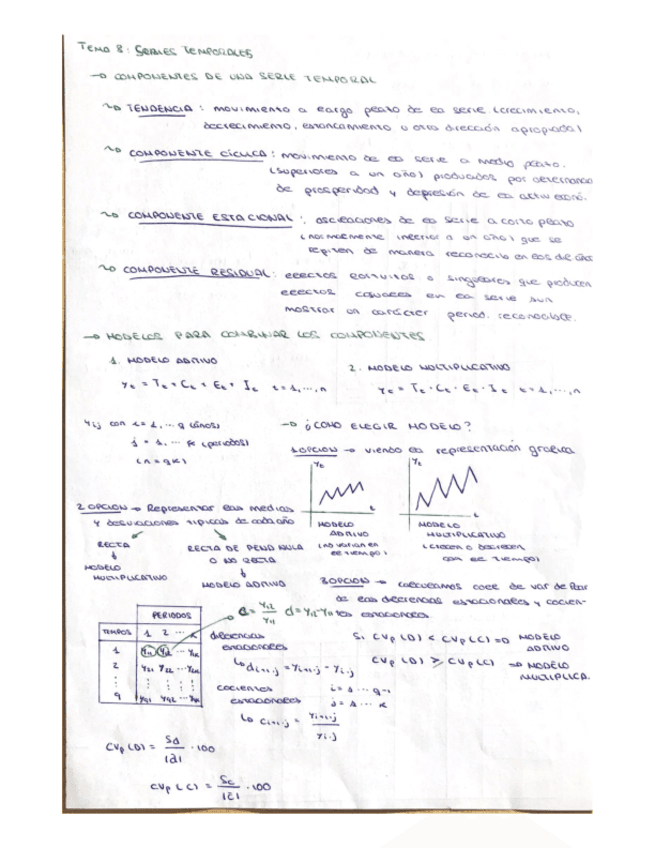 TEMA 8: SERIES TEMPORALES
→ COMPONENTES DE UNA SERIE TEMPORAL
↝ TENDENCIA: movimiento a largo plazo de la serie (crecimiento,
decrecimiento, estancamiento u otra dirección apropiada)
↝ COMPONENTE CÍCLICA: movimiento de la serie a medio plazo.
(superiores a un año) producidos por alternancia
de prosperidad y depresión de la activ. econó.
↝ COMPONENTE ESTACIONAL: oscilaciones de la serie a corto plazo
(normalmente inferior a un año) que se
repiten de manera reconocida en los dif. años
↝ COMPONENTE RESIDUAL: efectos fortuitos o singulares que producen
efectos casuales en la serie sin
mostrar un carácter period. reconocible.
→ MODELOS PARA COMBINAR LOS COMPONENTES
1. MODELO ADITIVO
Yt = Tt + Ct + Et + It t = 1, ..., n
2. MODELO MULTIPLICATIVO
Yt = Tt · Ct · Et · It t = 1, ..., n
Yij con i = 1, ... q (años)
j = 1, ... k (periodos)
(n = qk)
→ ¿CÓMO ELEGIR MODELO?
1 OPCIÓN → viendo la representación gráfica
Yt
t
MODELO
ADITIVO
(no varían en
el tiempo)
Yt
t
MODELO
MULTIPLICATIVO
(crecen o decrecen
con el tiempo)
2 OPCIÓN → Representar las medias
y desviaciones típicas de cada año
RECTA
↓
MODELO
MULTIPLICATIVO
RECTA DE PEND NULA
O NO RECTA
↓
MODELO ADITIVO
3 OPCIÓN → calculamos coef. de var de Pear
de las diferencias estacionales y cocien-
tes estacionales
C = Y12 / Y11 d = Y12 - Y11
PERIODOS
TIEMPOS 1 2 ... k
1 Y11 Y12 ... Y1k
2 Y21 Y22 ... Y2k
⋮ ⋮ ⋮ ⋮
q Yq1 Yq2 ... Yqk
diferencias
estacionales
↳ di+1,j = Yi+1,j - Yi,j
cocientes
estacionales
i = 1 ... q-1
j = 1 ... k
↳ Ci+1,j = Yi+1,j / Yi,j
Si CVp (D) < CVp (C) ⇒ MODELO
ADITIVO
CVp (D) ≥ CVp (C) ⇒ MODELO
MULTIPLICA.
CVp (D) = Sd / |d̄| · 100
CVp (C) = Sc / |c̄| · 100